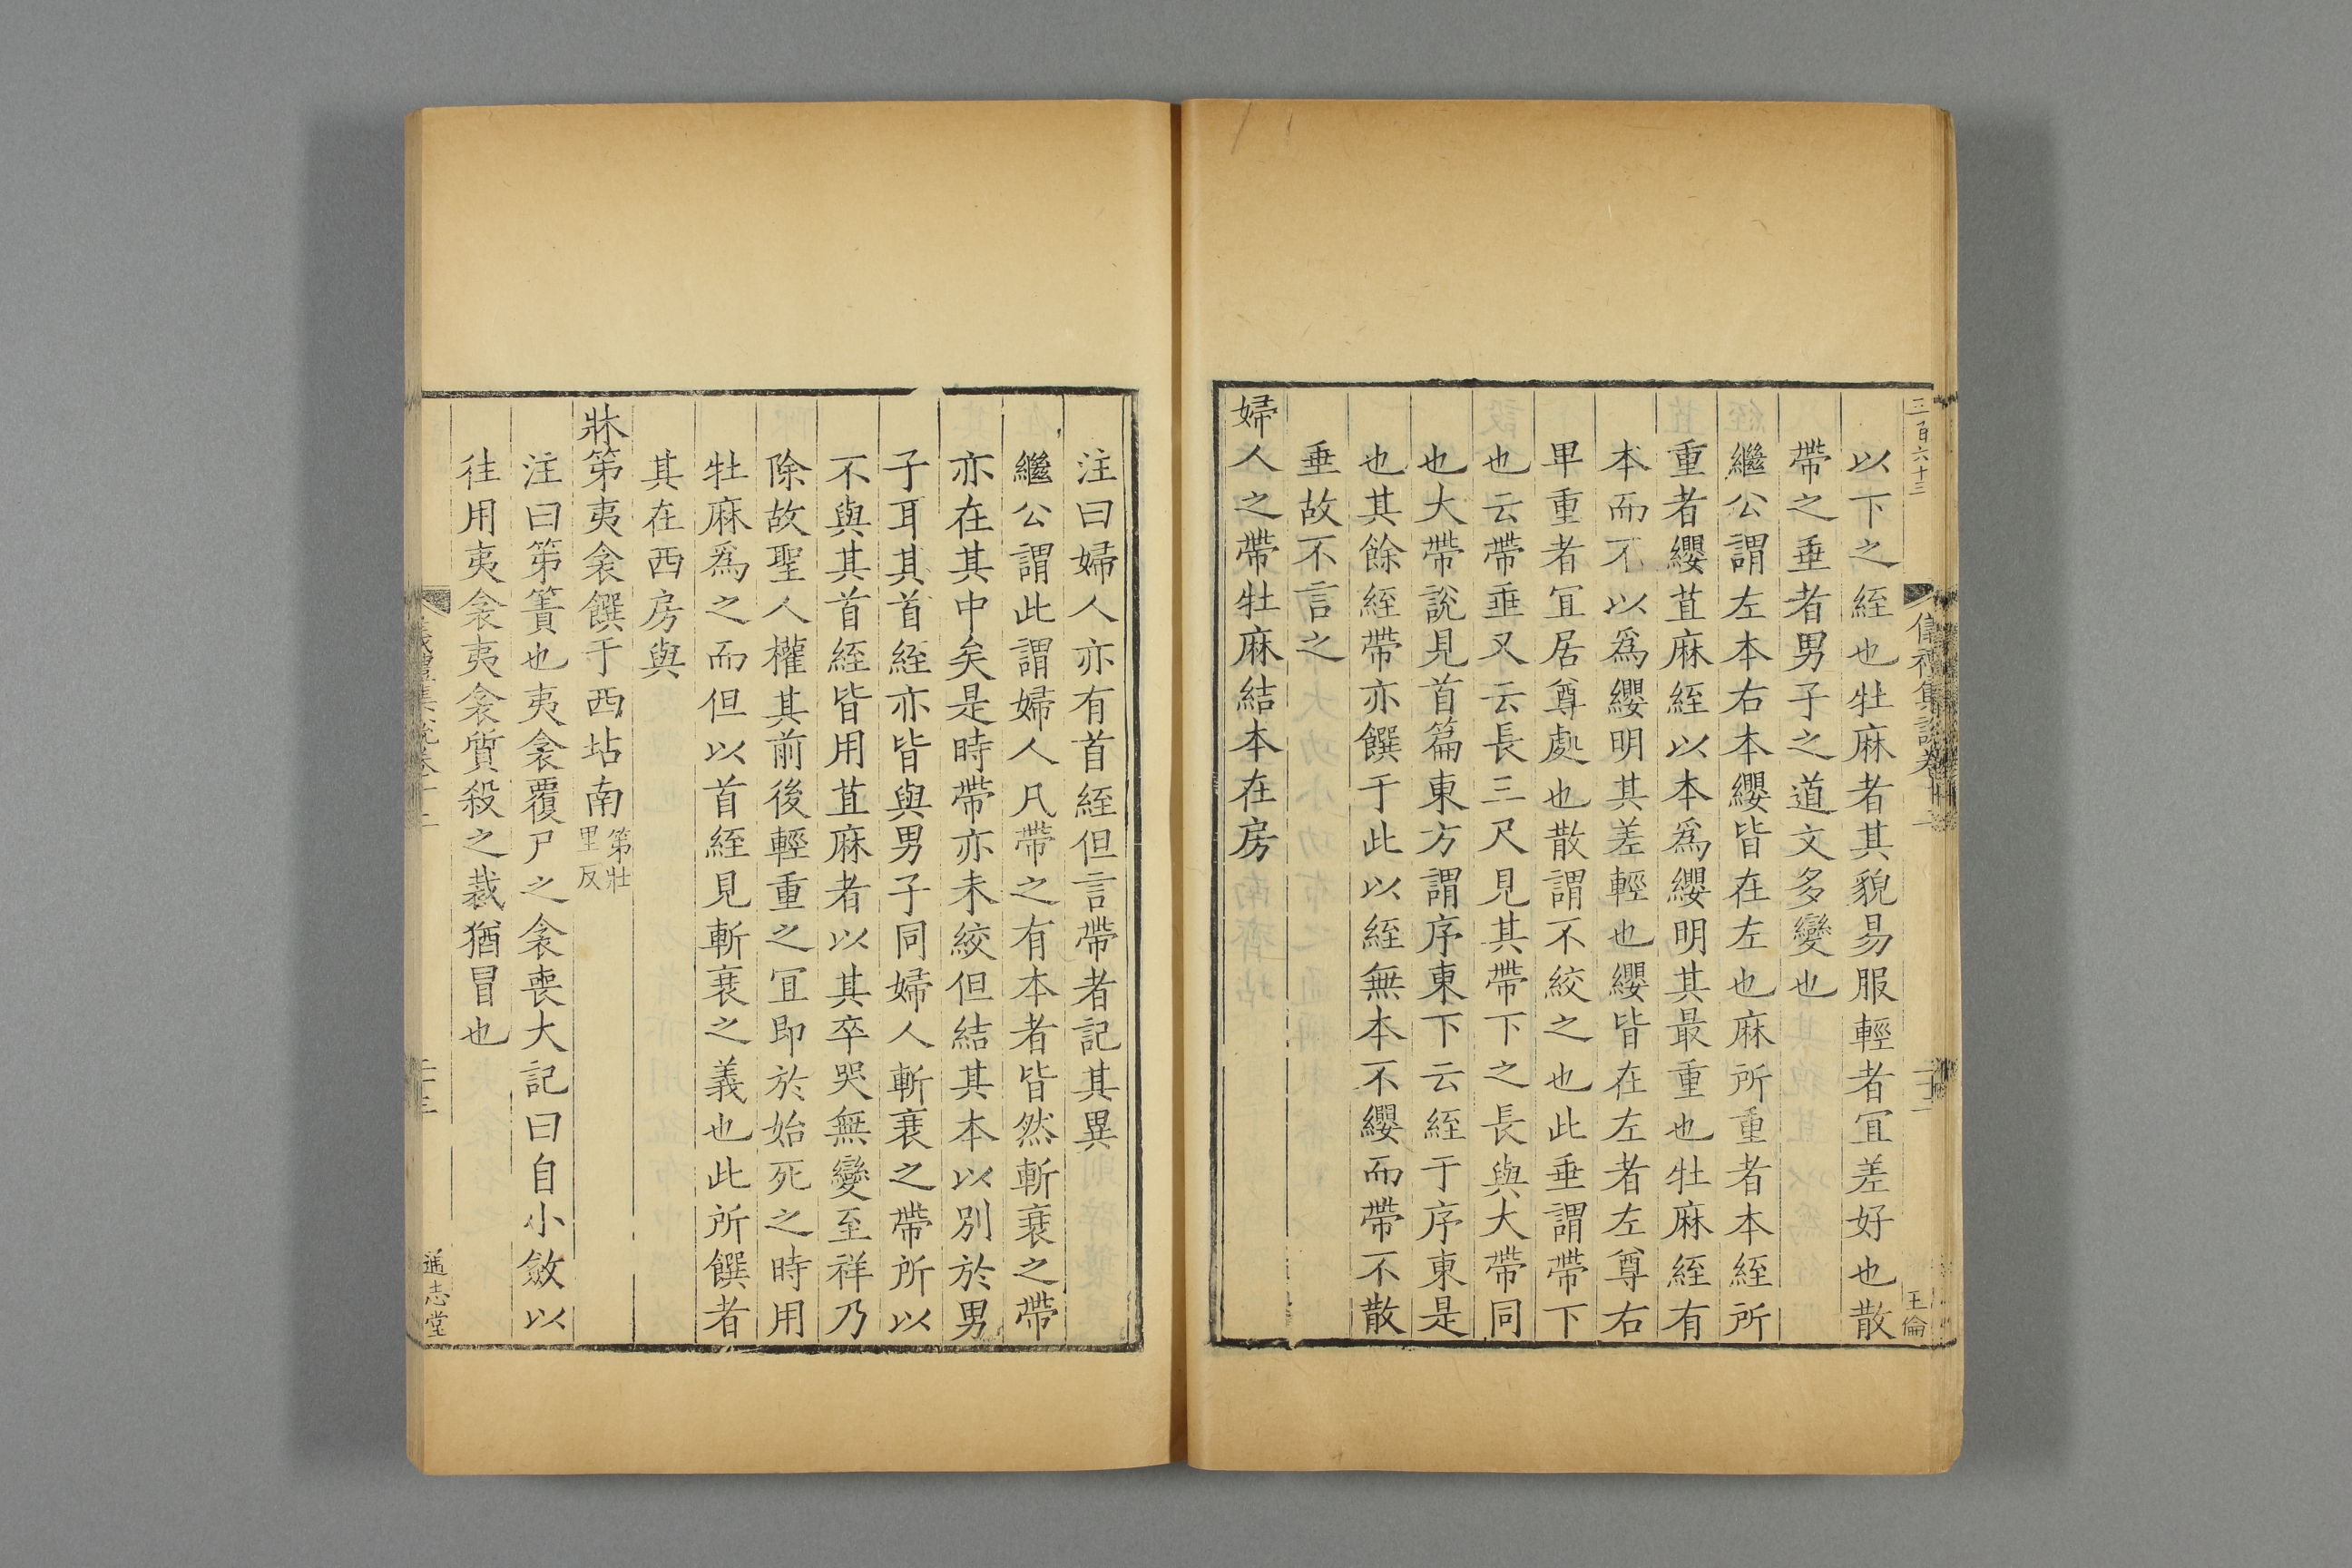 三百六十三
儀禮集說卷十二
王倫
以下之絰也牡麻者其貌易服輕者冝差好也散
帶之垂者男子之道文多變也
繼公謂左本右本纓皆在左也麻所重者本絰所
重者纓苴麻絰以本爲纓明其最重也牡麻絰有
本而不以爲纓明其差輕也纓皆在左者左尊右
卑重者冝居尊處也散謂不絞之也此垂謂帶下
也云帶垂又云長三尺見其帶下之長與大帶同
也大帶說見首篇東方謂序東下云絰于序東是
也其餘絰帶亦饌于此以絰無本不纓而帶不散
垂故不言之
婦人之帶牡麻結本在房
注曰婦人亦有首絰但言帶者記其異
繼公謂此謂婦人凡帶之有本者皆然斬衰之帶
亦在其中矣是時帶亦未絞但結其本以別於男
子耳其首絰亦皆與男子同婦人斬衰之帶所以
不與其首絰皆用苴麻者以其卒哭無變至祥乃
除故聖人權其前後輕重之冝即於始死之時用
牡麻爲之而但以首絰見斬衰之義也此所饌者
其在西房與
牀笫夷衾饌于西坫南笫壯里反
注曰笫簀也夷衾覆尸之衾喪大記曰自小斂以
往用夷衾夷衾質殺之裁猶冒也
儀禮集說卷十二
二十三
通志堂